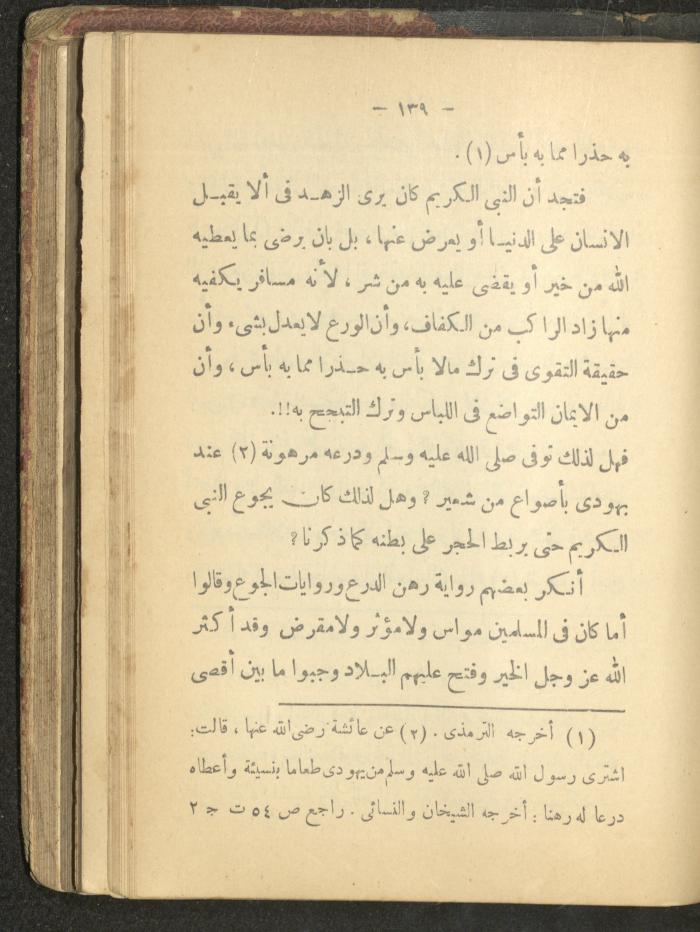 - ١٣٩ -
به حذرا مما به بأس (١) .
فتجد أن النبي الكريم كان يرى الزهد في ألا يقبل
الانسان على الدنيا أو يعرض عنها ، بل بان يرضى بما يعطيه
الله من خير أو يقضى عليه به من شر ، لأنه مسافر يكفيه
منها زاد الراكب من الكفاف، وأن الورع لا يعدل بشىء وأن
حقيقة التقوى في ترك مالا بأس به حذرا مما به بأس ، وأن
من الايمان التواضع في اللباس وترك التبجح به!!.
فهل لذلك توفى صلى الله عليه وسلم ودرعه مرهونة (٢) عند
يهودى بأصواع من شعير ؟ وهل لذلك كان يجوع النبي
الكريم حتى يربط الحجر على بطنه كما ذكرنا ؟
أنكر بعضهم رواية رهن الدرع وروايات الجوع وقالوا
أما كان في المسلمين مواس ولا مؤثر ولا مقرض وقد أكثر
الله عز وجل الخير وفتح عليهم البلاد وجبوا ما بين أقصى
(١) أخرجه الترمذى . (٢) عن عائشة رضى الله عنها ، قالت:
اشترى رسول الله صلى الله عليه وسلم من يهودى طعاما بنسيئة وأعطاه
درعا له رهنا : أخرجه الشيخان والنسائى . راجع ص ٥٤ ت ج ٢